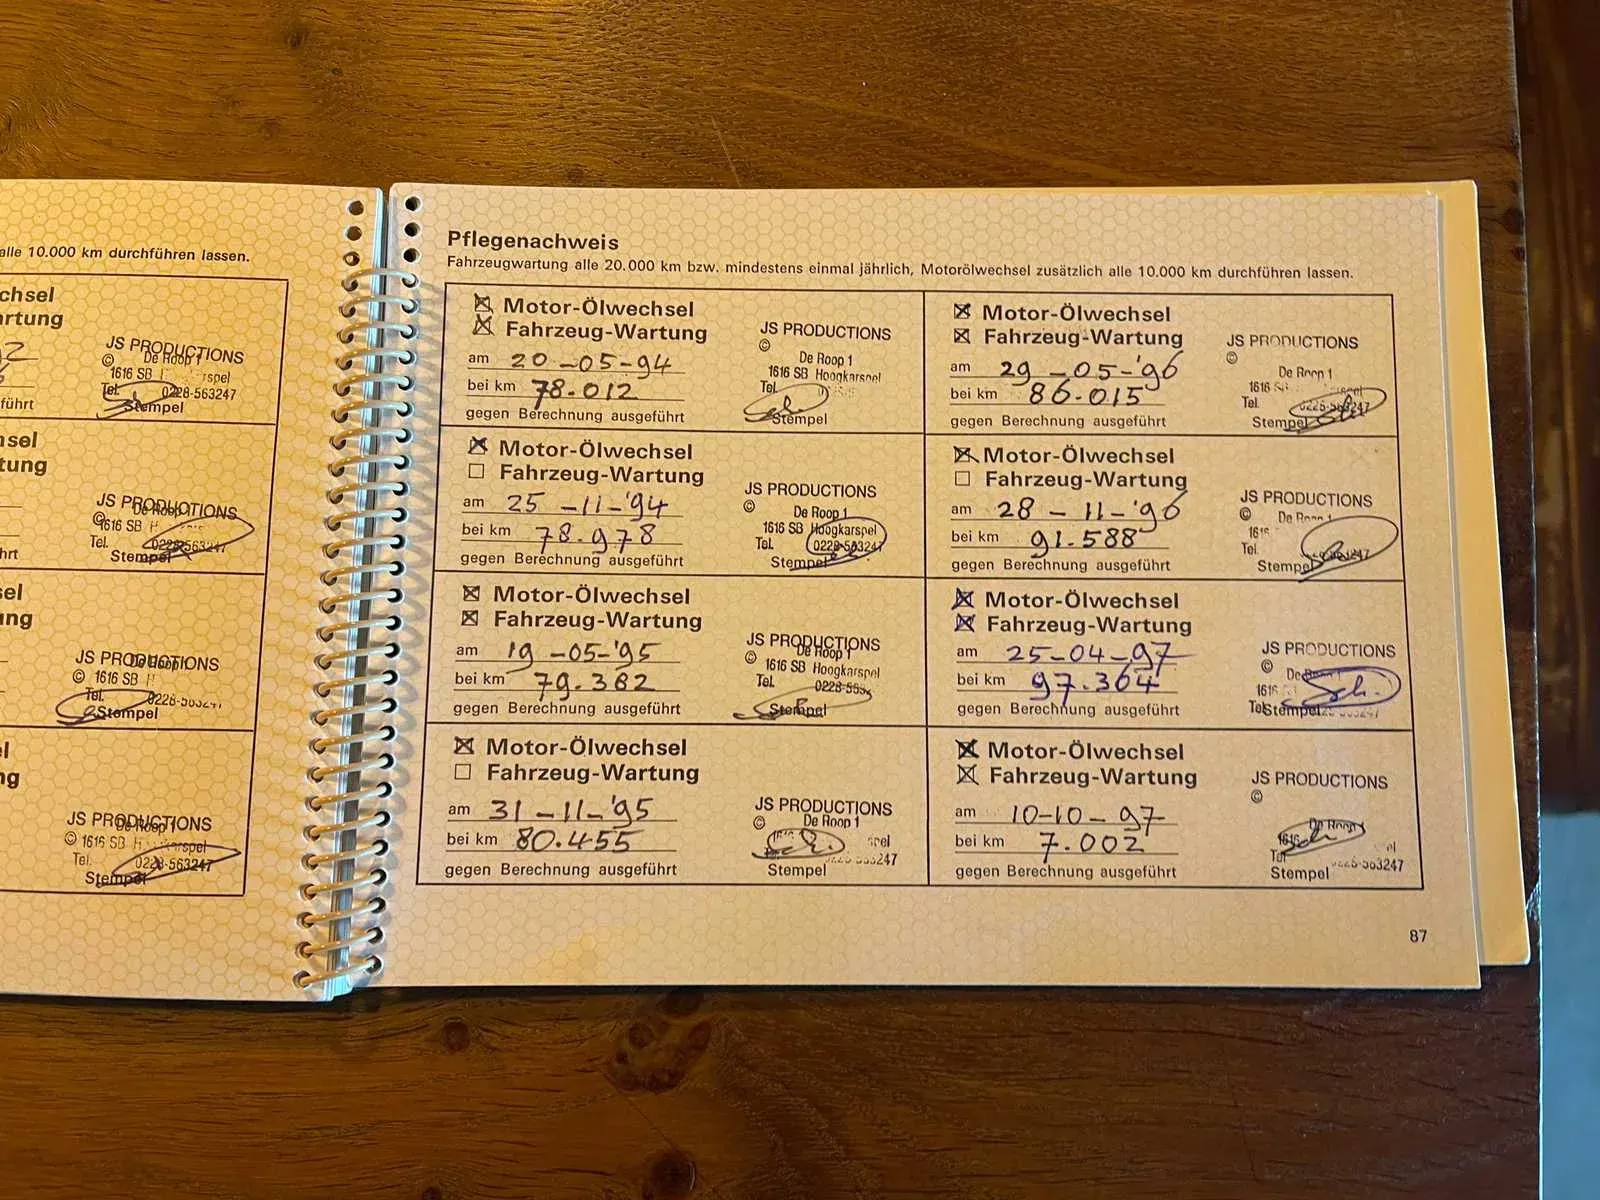 alle 10.000 km durchführen lassen.
chsel
artung
JS PRODUCTIONS
© De Roop 1
1616 SB
Tel. 0228-563247
führt
Stempel
hsel
tung
JS PRODUCTIONS
© De Roop
1616 SB
Tel. 0228-563247
hrt
Stempel
sel
ung
JS PRODUCTIONS
De Roop 1
© 1616 SB
Tel. 0228-563247
Stempel
el
ng
JS PRODUCTIONS
De Roop 1
© 1616 SB
Tel. 0228-563247
Stempel
Pflegenachweis
Fahrzeugwartung alle 20.000 km bzw. mindestens einmal jährlich, Motorölwechsel zusätzlich alle 10.000 km durchführen lassen.
☒ Motor-Ölwechsel
☒ Fahrzeug-Wartung
am 20-05-94
bei km 78.012
gegen Berechnung ausgeführt
JS PRODUCTIONS
©
De Roop 1
1616 SB Hoogkarspel
Tel.
Stempel
☒ Motor-Ölwechsel
☐ Fahrzeug-Wartung
am 25-11-'94
bei km 78.978
gegen Berechnung ausgeführt
JS PRODUCTIONS
© De Roop 1
1616 SB Hoogkarspel
Tel. 0228-563247
Stempel
☒ Motor-Ölwechsel
☒ Fahrzeug-Wartung
am 19-05-'95
bei km 79.382
gegen Berechnung ausgeführt
JS PRODUCTIONS
© De Roop 1
1616 SB Hoogkarspel
Tel.
Stempel
☒ Motor-Ölwechsel
☐ Fahrzeug-Wartung
am 31-11-'95
bei km 80.455
gegen Berechnung ausgeführt
JS PRODUCTIONS
© De Roop 1
Stempel
☒ Motor-Ölwechsel
☒ Fahrzeug-Wartung
am 29-05-'96
bei km 86.015
gegen Berechnung ausgeführt
JS PRODUCTIONS
©
De Roop 1
1616
Tel. 0228-563247
Stempel
☒ Motor-Ölwechsel
☐ Fahrzeug-Wartung
am 28-11-'96
bei km 91.588
gegen Berechnung ausgeführt
JS PRODUCTIONS
© De Roop 1
Tel.
Stempel
☒ Motor-Ölwechsel
☒ Fahrzeug-Wartung
am 25-04-97
bei km 97.364
gegen Berechnung ausgeführt
JS PRODUCTIONS
©
1616
Tel.
Stempel
☒ Motor-Ölwechsel
☒ Fahrzeug-Wartung
am 10-10-97
bei km 7.002
gegen Berechnung ausgeführt
JS PRODUCTIONS
©
De Roop 1
1616
Tel. 0228-563247
Stempel
87